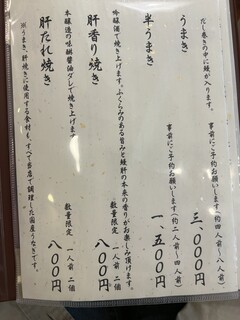 うまき
だし巻きの中に鰻が入ります。
事前にご予約お願いします(約四人前〜八人前)
三、〇〇〇円
半うまき
事前にご予約お願いします(約二人前〜四人前)
一、五〇〇円
肝香り焼き
吟醸酒で焼き上げます。ふくらみのある旨みと鰻肝の本来の香りがお楽しみ頂けます。
数量限定 一人前 二個
八〇〇円
肝たれ焼き
本醸造の味醂醤油ダレで焼き上げます。
数量限定 一人前 二個
八〇〇円
※うまき、肝焼きに使用する食材も、すべて当店で調理した国産うなぎです。